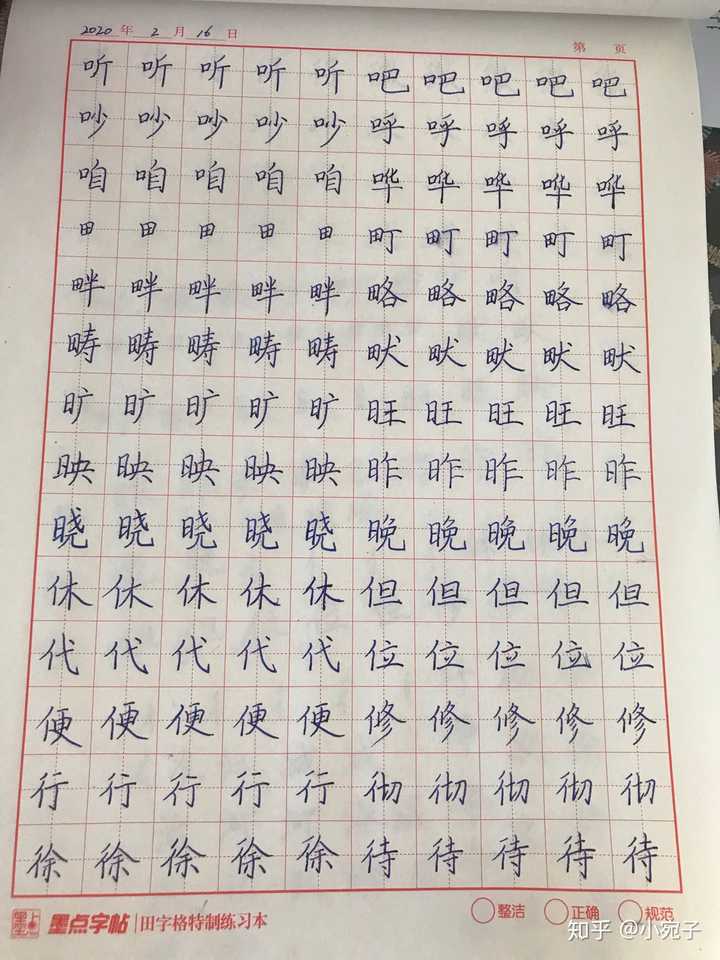 2020年2月16日
第 页
听听听听听吧吧吧吧吧
吵吵吵吵吵呼呼呼呼呼
咱咱咱咱咱哗哗哗哗哗
田田田田田町町町町町
畔畔畔畔畔略略略略略
畴畴畴畴畴畎畎畎畎畎
旷旷旷旷旷旺旺旺旺旺
映映映映映昨昨昨昨昨
晓晓晓晓晓晚晚晚晚晚
休休休休休但但但但但
代代代代代位位位位位
便便便便便修修修修修
行行行行行彻彻彻彻彻
徐徐徐徐徐待待待待待
墨点字帖 田字格特制练习本
整洁 正确 规范
知乎 @小宛子